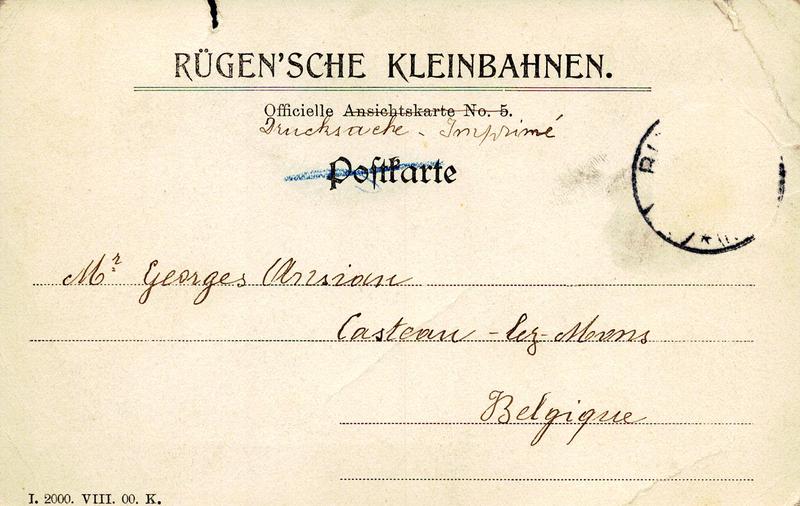 RÜGEN'SCHE KLEINBAHNEN.
Officielle Ansichtskarte No. 5.
Drucksache - Imprimé
Postkarte
Mr Georges Ansiau
Casteau - lez - Mons
Belgique
I. 2000. VIII. 00. K.